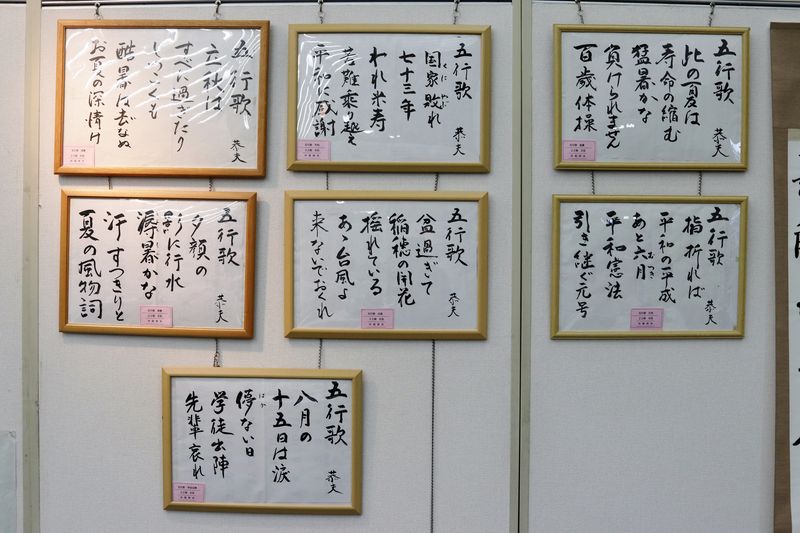 五行歌
此の夏は
寿命の縮む
猛暑かな
負けられません
百歳体操
恭夫
五行歌
国家敗れ
くにやぶ
七十三年
われ米寿
苦難乗り越え
平和に感謝
恭夫
五行歌
立秋は
すでに過ぎたり
しつこくも
酷暑は去なぬ
お夏の深情け
恭夫
五行歌
指折れば
平和の平成
あと六月
むつき
平和憲法
引き継ぐ元号
恭夫
五行歌
盆過ぎて
稲穂の開花
揺れている
あゝ台風よ
来ないでおくれ
恭夫
五行歌
夕顔の
行水
溽暑かな
汗すっきりと
夏の風物詞
恭夫
五行歌
八月の
十五日は涙
儚ない日
はか
学徒出陣
先輩哀れ
恭夫